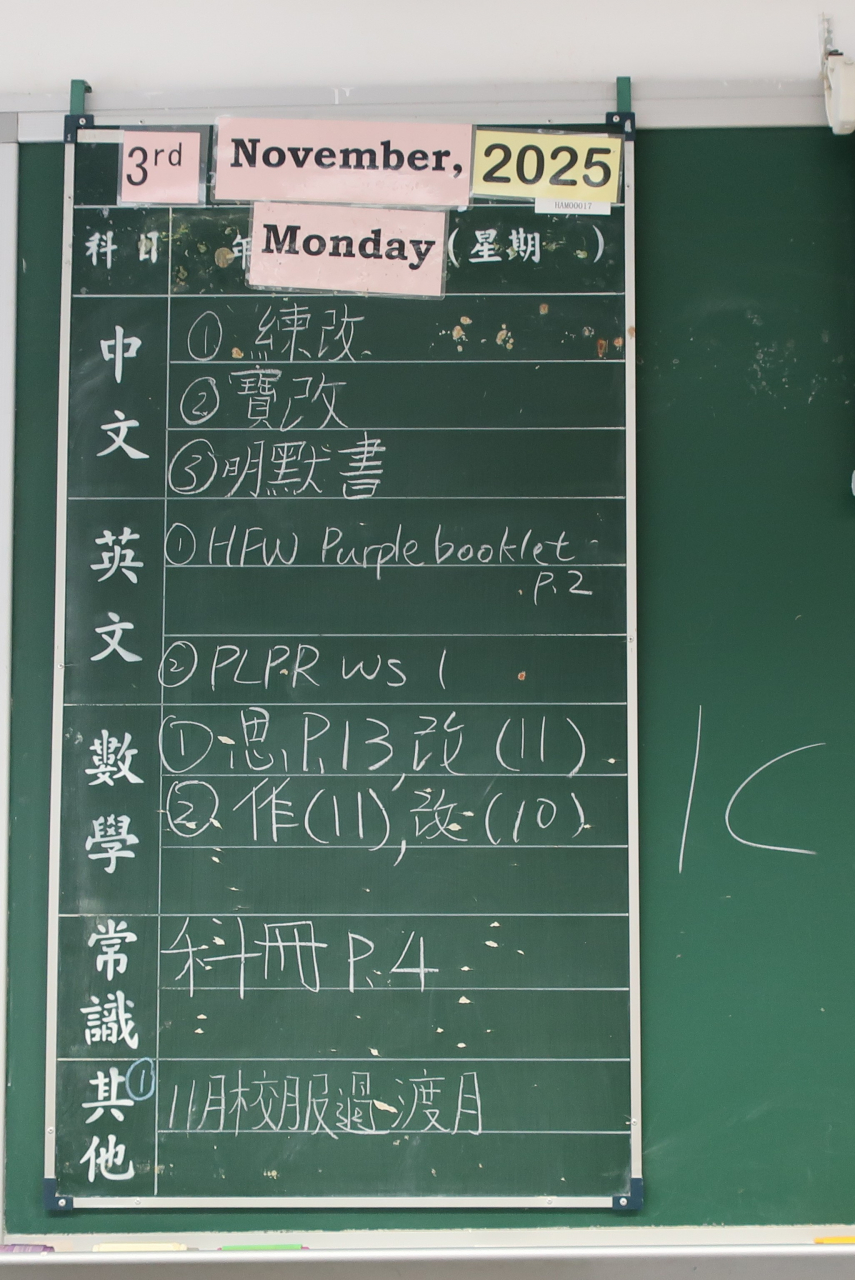 3rd November, 2025
HAM00017
科目 年 Monday (星期 )
中文
① 練改
② 寶改
③ 明默書
英文
① HFW Purple booklet
P.2
② PLPR WS 1
數學
① 思P.13,改(11)
② 作(11),改(10)
常識
科冊 P.4
其他
① 11月校服過渡月
1C